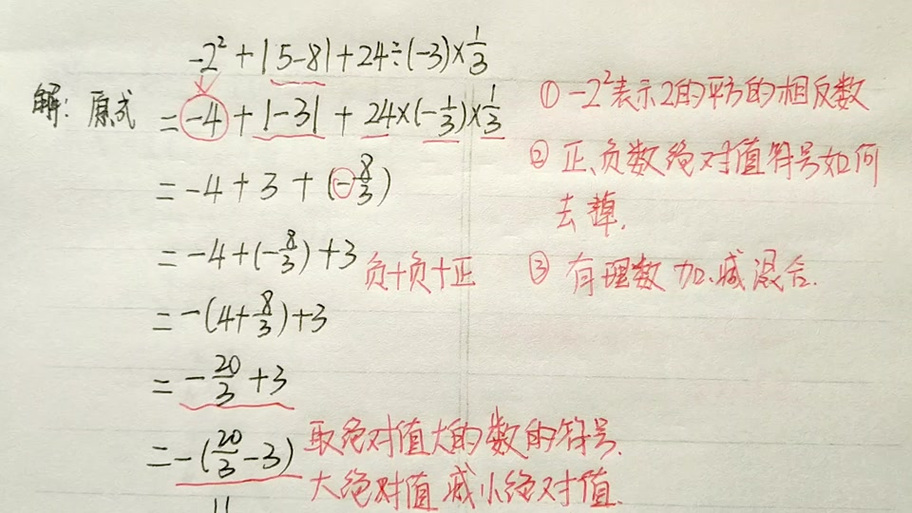 -2²+|5-8|+24÷(-3)×1/3
解: 原式 =-4+|-3|+24×(-1/3)×1/3
=-4+3+(-8/3)
=-4+(-8/3)+3
负+负+正
=-(4+8/3)+3
=-20/3+3
=-(20/3-3)
11
① -2²表示2的平方的相反数
② 正、负数绝对值符号如何
去掉.
③ 有理数加、减混合.
取绝对值大的数的符号.
大绝对值减小绝对值.